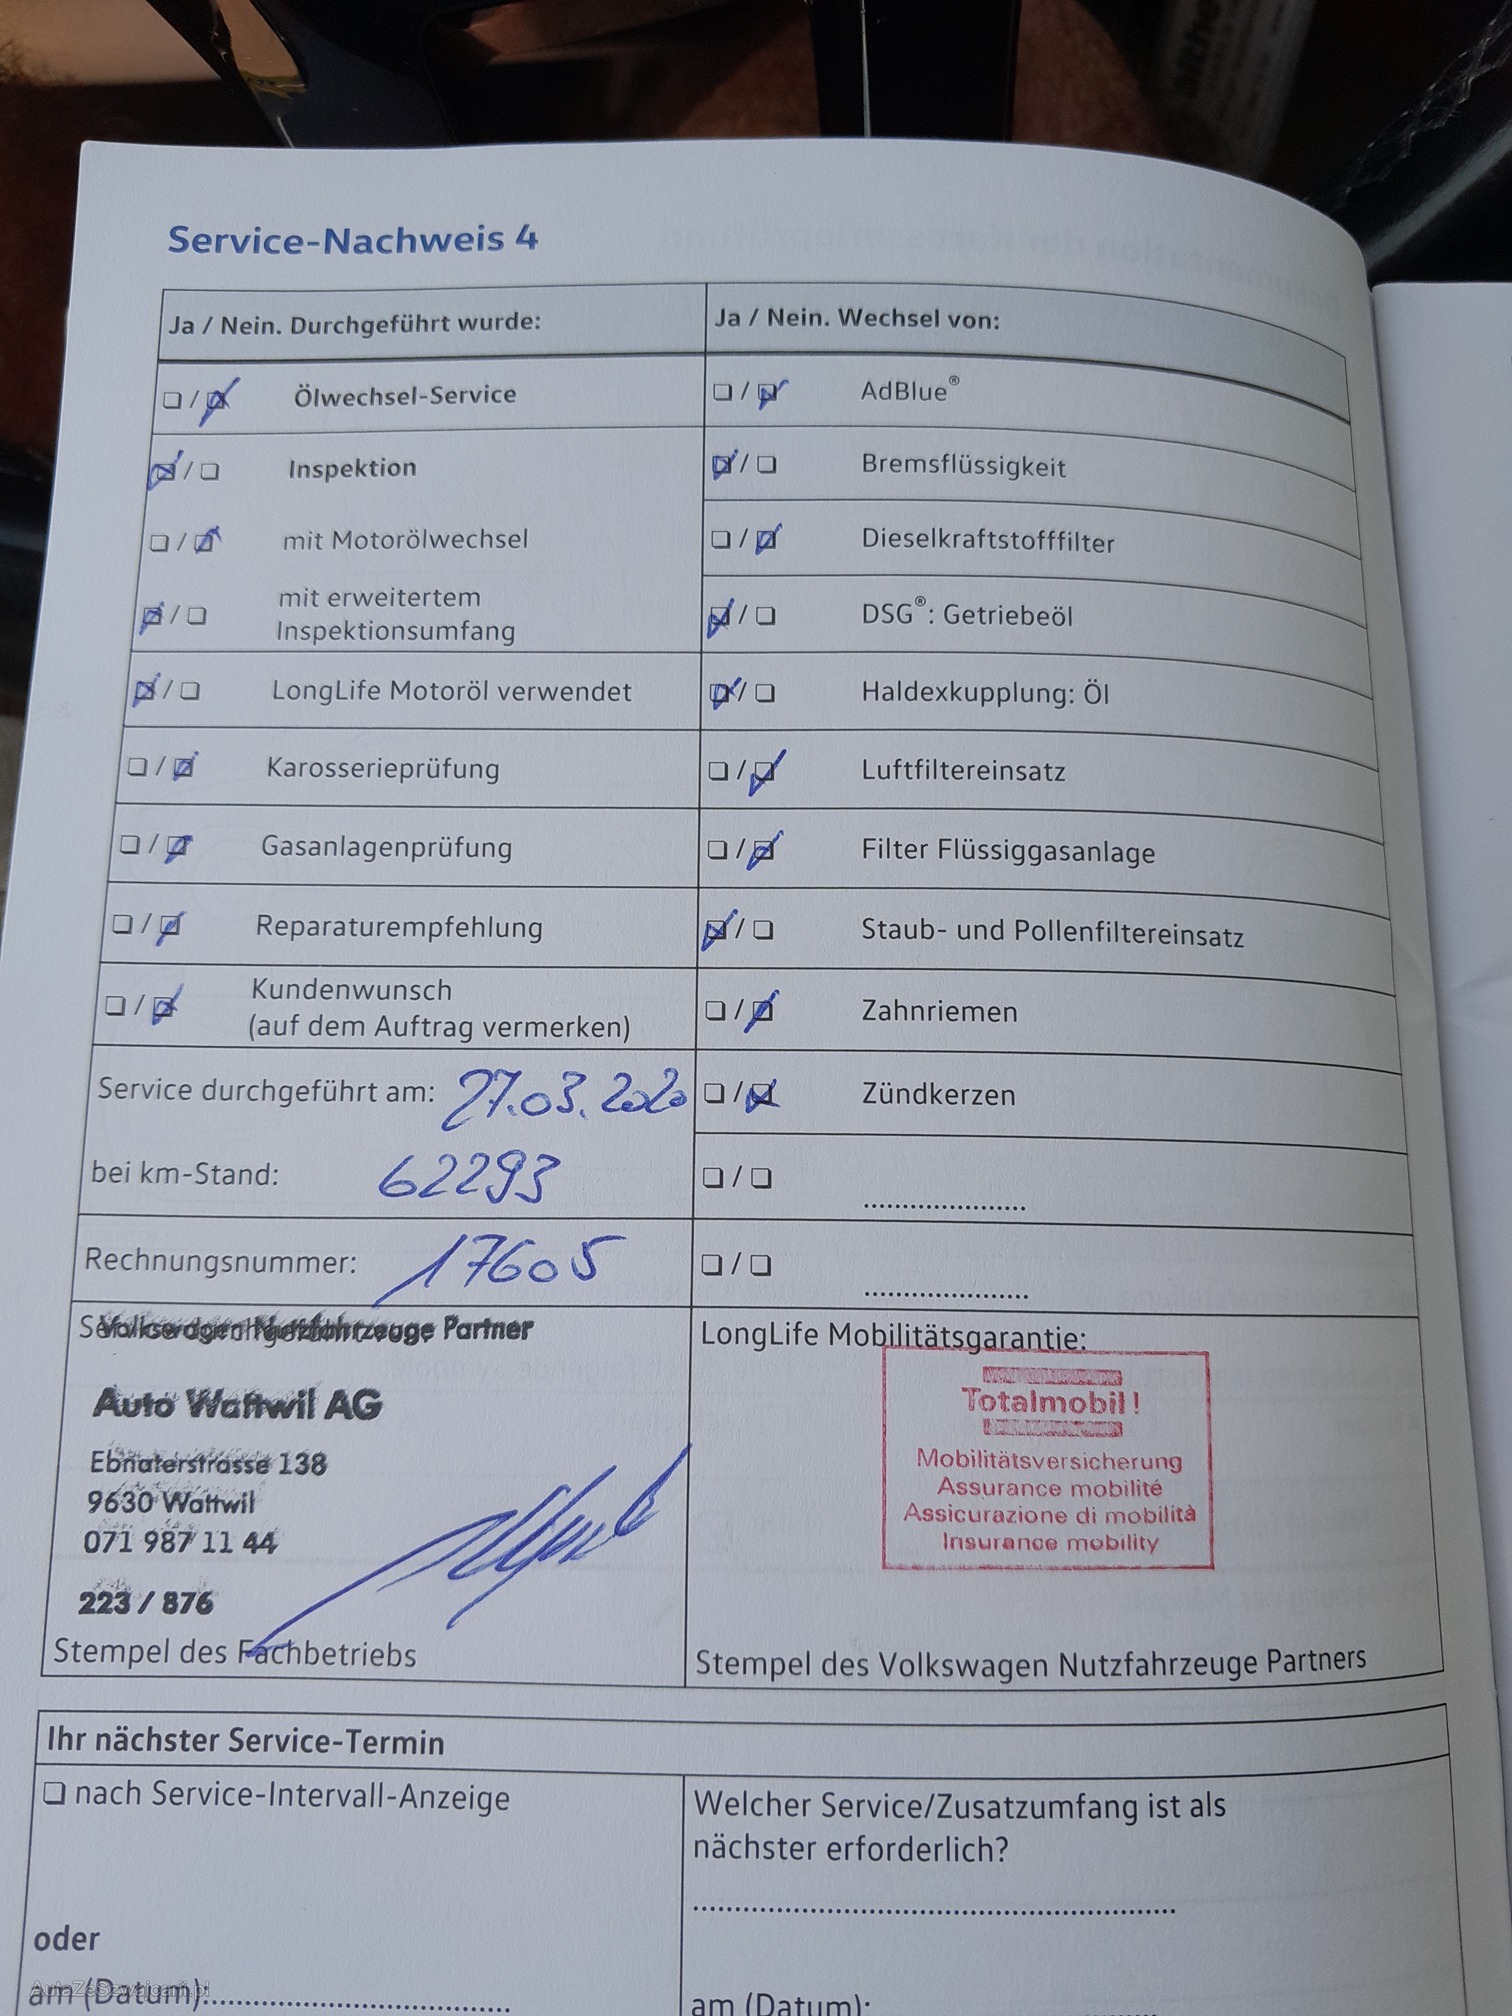 Service-Nachweis 4
Ja / Nein. Durchgeführt wurde:
Ja / Nein. Wechsel von:
Ölwechsel-Service
AdBlue®
Inspektion
Bremsflüssigkeit
mit Motorölwechsel
Dieselkraftstofffilter
mit erweitertem
Inspektionsumfang
DSG®: Getriebeöl
LongLife Motoröl verwendet
Haldexkupplung: Öl
Karosserieprüfung
Luftfiltereinsatz
Gasanlagenprüfung
Filter Flüssiggasanlage
Reparaturempfehlung
Staub- und Pollenfiltereinsatz
Kundenwunsch
(auf dem Auftrag vermerken)
Zahnriemen
Service durchgeführt am: 27.03.2020
Zündkerzen
bei km-Stand: 62293
Rechnungsnummer: 17605
Volkswagen Nutzfahrzeuge Partner
Auto Wattwil AG
Ebnaterstrasse 138
9630 Wattwil
071 987 11 44
223 / 876
Stempel des Fachbetriebs
LongLife Mobilitätsgarantie:
Totalmobil!
Mobilitätsversicherung
Assurance mobilité
Assicurazione di mobilità
Insurance mobility
Stempel des Volkswagen Nutzfahrzeuge Partners
Ihr nächster Service-Termin
nach Service-Intervall-Anzeige
Welcher Service/Zusatzumfang ist als
nächster erforderlich?
oder
am (Datum):
am (Datum):
AutaZeSzwajcarii.pl